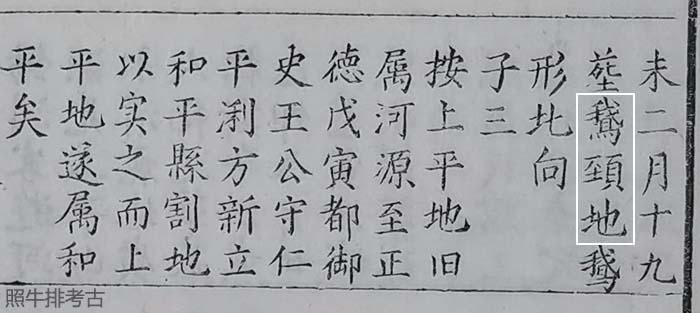 未二月十九
塟鵞頸地鵞
形北向
子三
按上平地旧
属河源至正
德戊寅都御
史王公守仁
平浰方新立
和平縣割地
以实之而上
平地遂属和
平矣
照牛排考古